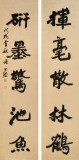 揮毫散林鵲
研墨驚池魚